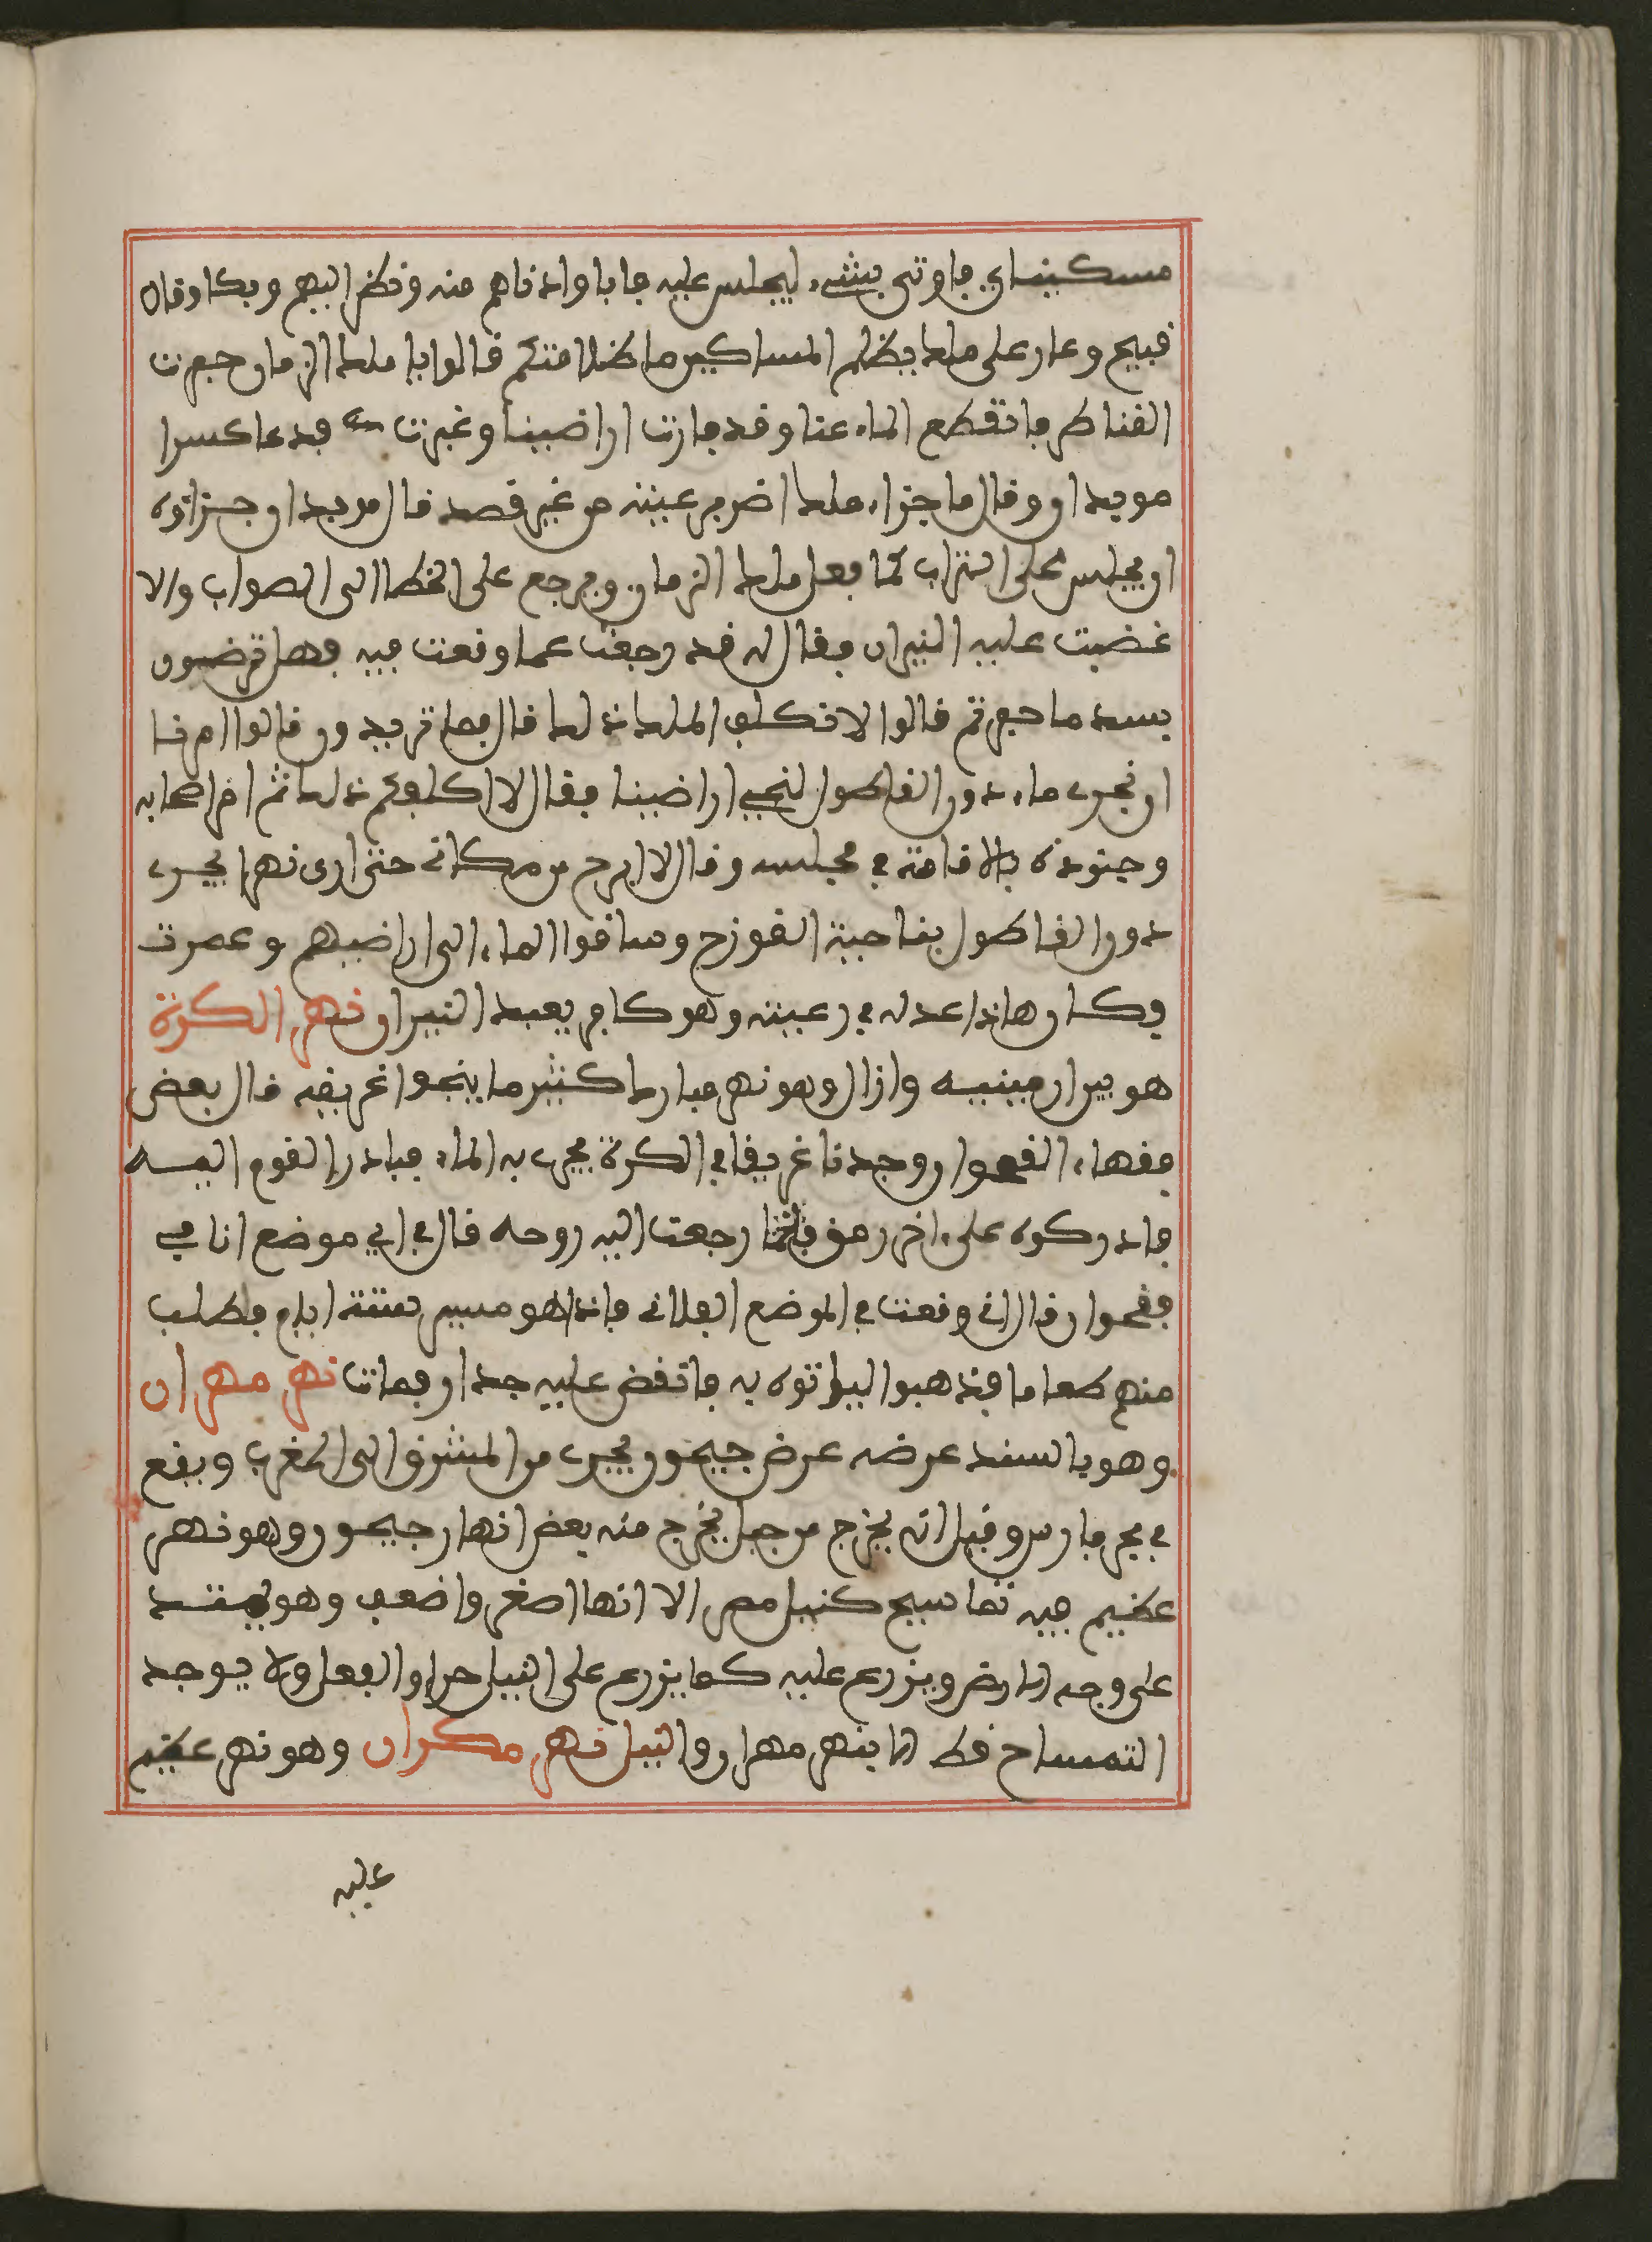 مسكينان فاوتي بشيء ليجلس عليه فابا وادناهم منه ونظر اليهم وبكا وقال
قبيح وعار على ملك يظلم المساكين ما ظلامتكم قالوا يا ملك الزمان حفرت
القناطر فانقطع الماء عنا وقد بارت اراضينا وغبرت فدعا كسرا
موبدان وقال ما جزاء ملك اضر برعيته من غير قصد قال موبدان جزاؤه
ان يجلس على التراب كما فعل ملك الزمان ويرجع على الخطا الى الصواب والا
غضبت عليه النيران فقال له قد رجعت عما وقعت فيه فهل ترضون
بسد ما حفرتم قالوا لا نكلف الملك ذلك قال فما تريدون قالوا امرنا
ان نجري ماء دون القاطول لنحيي اراضينا فقال لا اكلفكم ذلك ثم امر اصحابه
وجنوده بالاقامة في مجلسه وقال لا ابرح من مكاني حتى ارى نهرا يجري
دون القاطول بناحية القوزح وساقوا الماء الى اراضيهم وعمرت
وكان هاذا عدله في رعيته وهو كافر يعبد النيران نهر الكرة
هو بين ارمينيه وازال وهو نهر مبارك كثير ما ينجوا غريقه قال بعض
فقهاء القجوان وجدنا غريقا في الكرة يجري به الماء فبادر القوم اليه
فادركوه على ءاخر رمق فلما رجعت اليه روحه قال في اي موضع انا في
فقجوان قال اني وقعت في الموضع الفلاني فاذا هو مسير ستة ايام فطلب
منهم طعاما فذهبوا لياتوه به فانقض عليه جدار فمات نهر مهران
وهو بالسند عرضه عرض جيحون يجري من المشرق الى المغرب ويقع
في بحر فارس وقيل انه يخرج من جبل يخرج منه بعض انهار جيحون وهو نهر
عظيم فيه تماسيح كنيل مصر الا انها اصغر واضعف وهو يمتد
على وجه الارض ويزرع عليه كما يزرع على النيل والفعل ولا يوجد
التمساح قط الا بنهر مهران والنيل نهر مكران وهو نهر عظيم
عليه